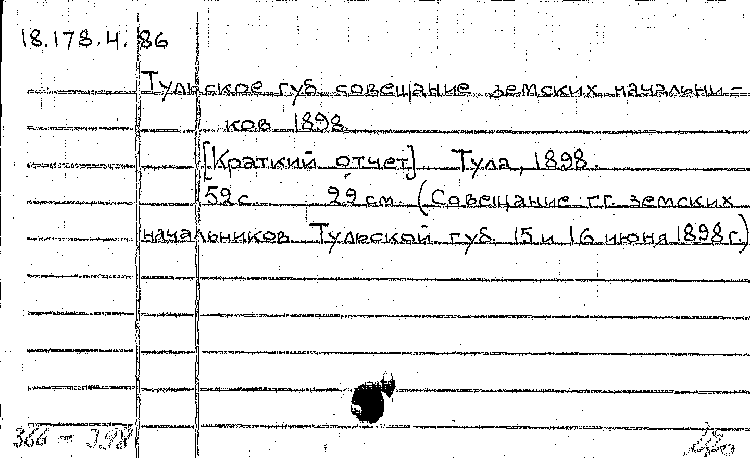 18.178.4.86
Тульское губ. совещание земских начальни-
ков 1898
[Краткий отчет] Тула, 1898.
52 с. 29 см. (Совещание г.г. земских
начальников Тульской губ. 15 и 16 июня 1898 г.)
366 - 398